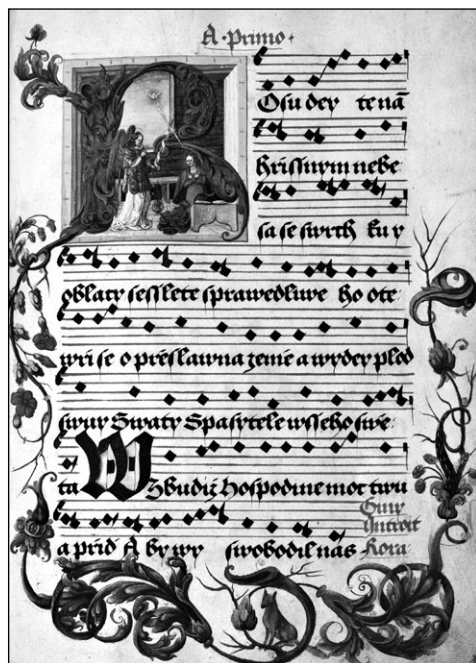 A · Primo ·
Osu dey te nā
hrissnym nebe
sa se swrch ku y
oblaky sesslete sprawedliwe ho ote
wri se o preslawna zeme a wydey plod
swuy Swaty Spasytele wsseho swe
ta Wzbudiz Hospodine moc twu
a prid A by wy swobodil nas
Giny
Introit
Rora